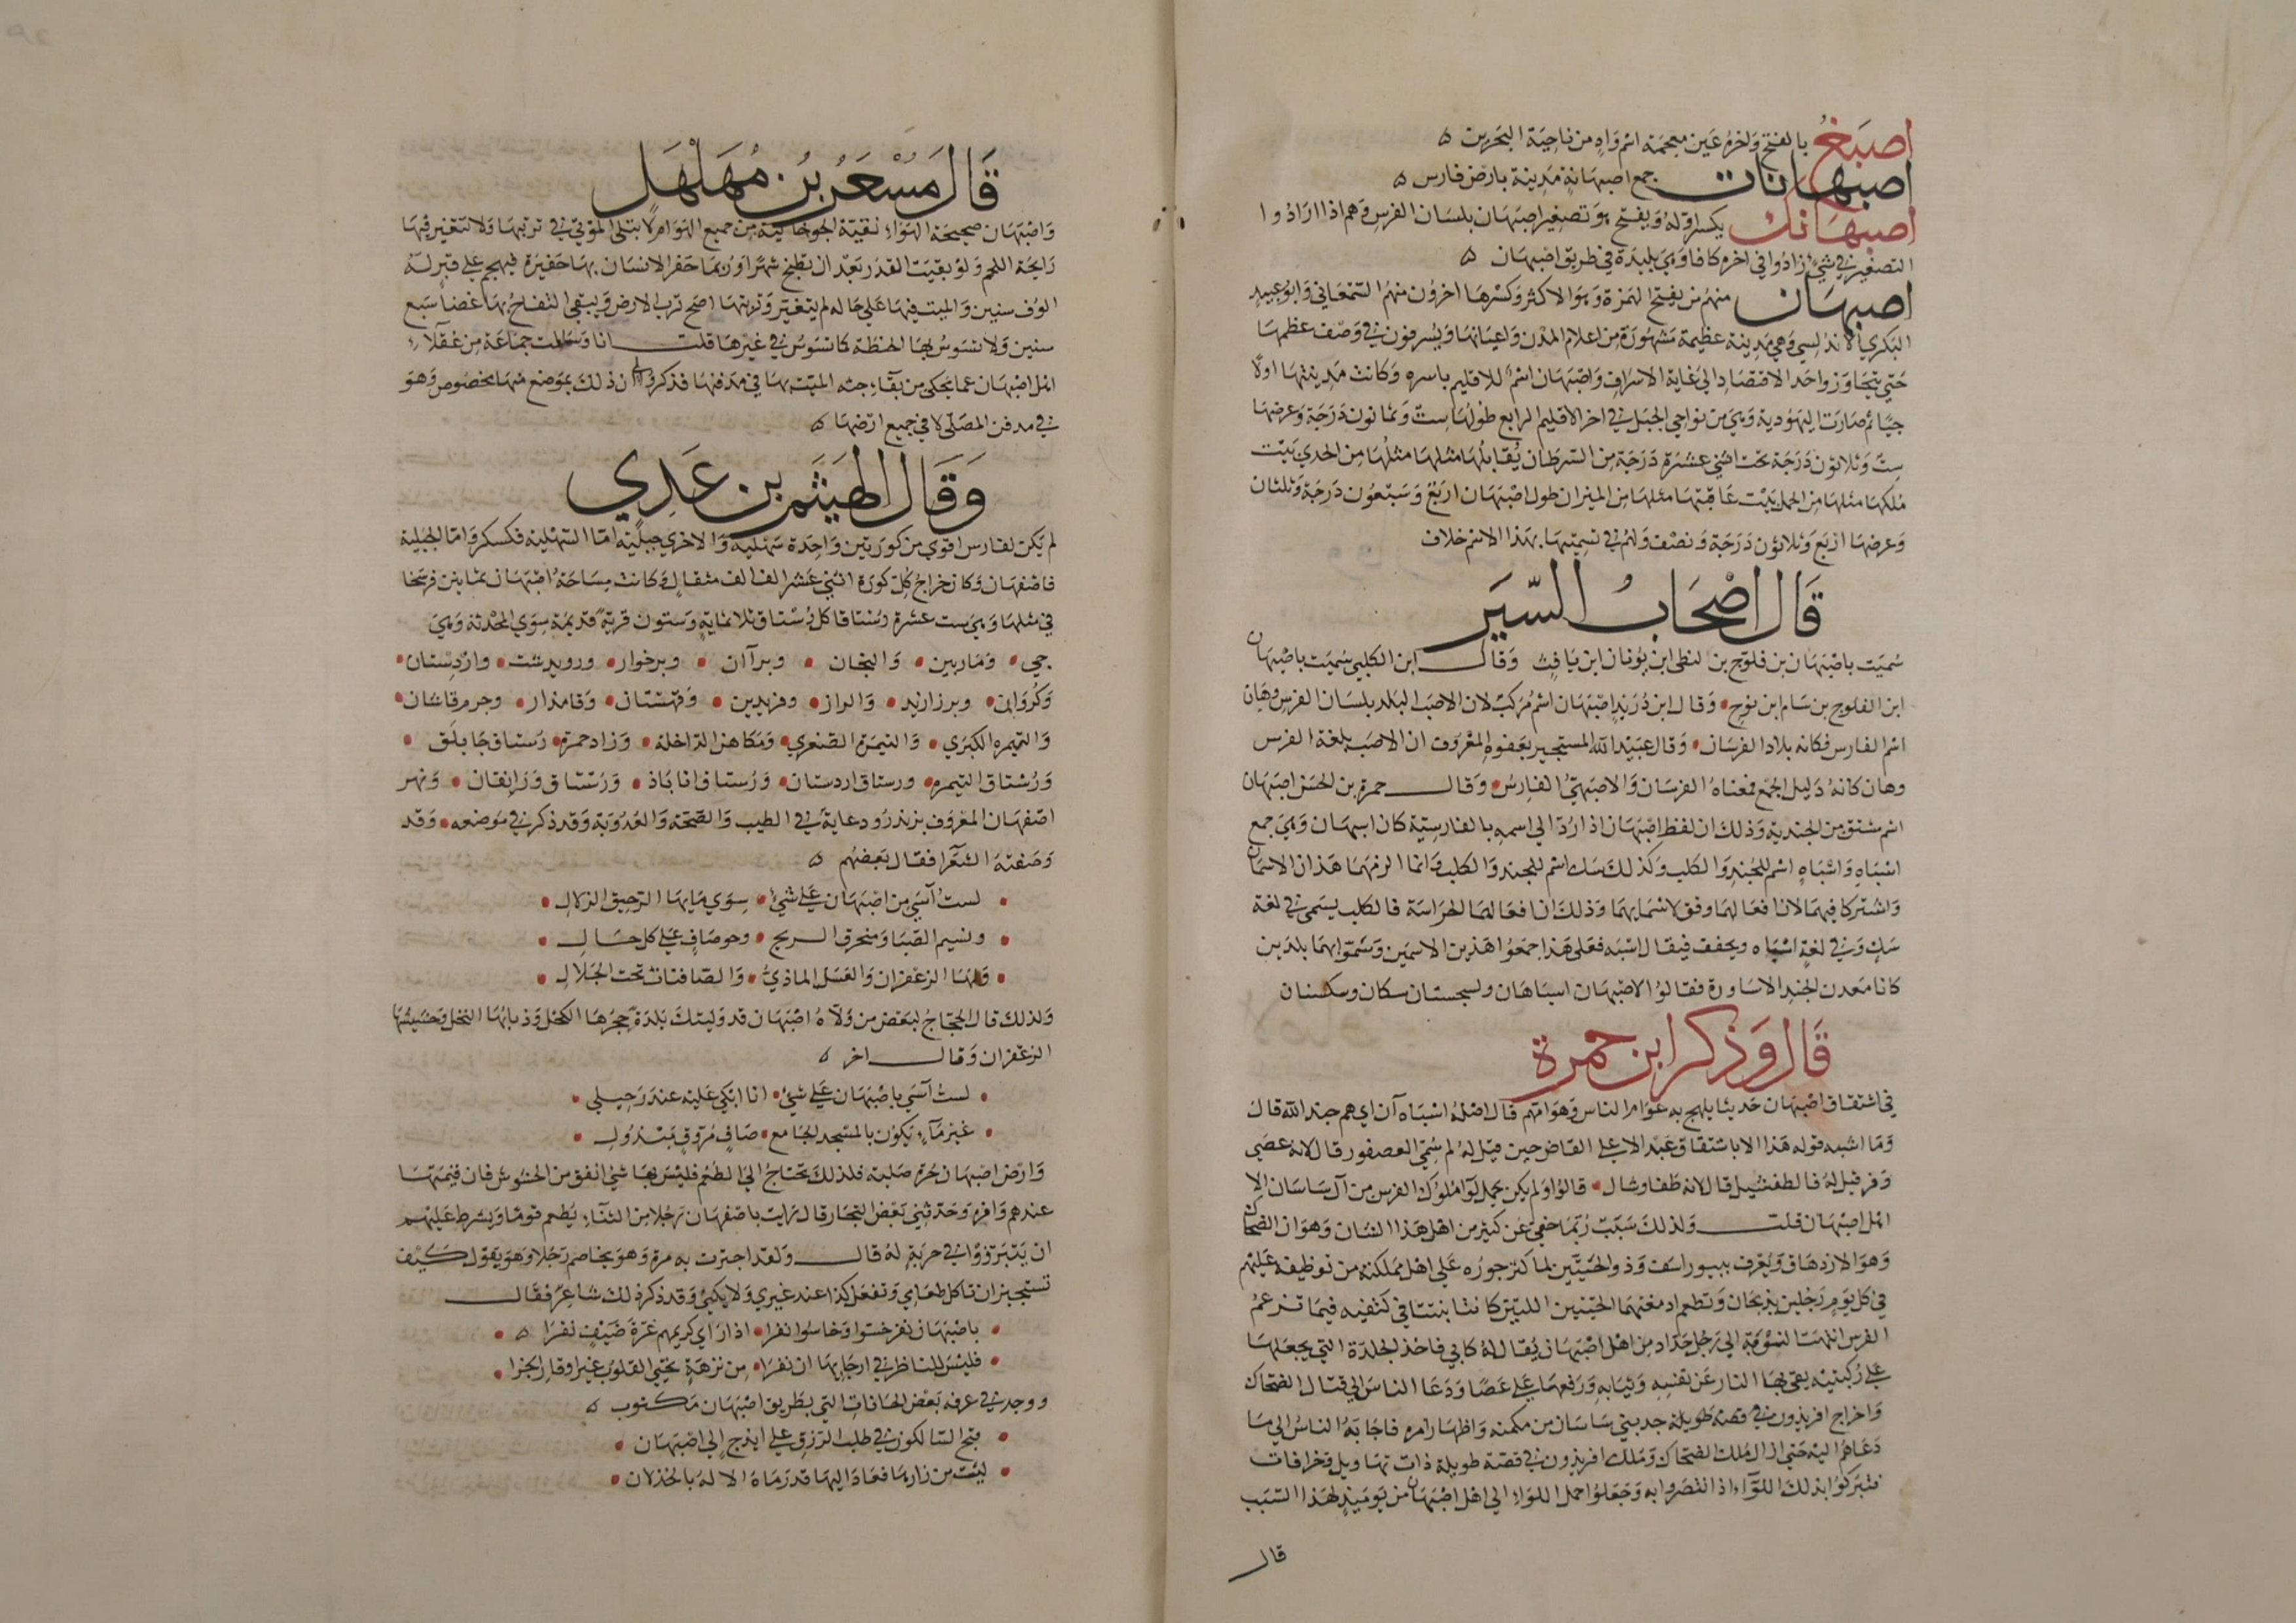 اصبغ بالفتح واخره غين معجمة اسم واد من ناحية البحرين ه
اصبهانات جمع اصبهانة مدينة بارض فارس ه
اصبهانك بكسر اوله ويفتح وهو تصغير اصبهان بلسان الفرس وهم اذا ارادوا
التصغير في شيء زادوا في اخره كافا وهي بليدة في طريق اصبهان ه
اصبهان منهم من يفتح الهمزة وهو الاكثر وكسرها اخرون منهم السمعاني وابو عبيد
البكري الاندلسي وهي مدينة عظيمة مشهورة من اعلام المدن واعيانها ويسرفون في وصف عظمها
حتي يتجاوزوا حد الاقتصاد الى غاية الاسراف واصبهان اسم للاقليم باسره وكانت مدينتها اولا
جيا ثم صارت اليهودية وهي من نواحي الجبل في اخر الاقليم الرابع طولها ست وثمانون درجة وعرضها
ست وثلاثون درجة تحت اثنى عشرة درجة من السرطان يقابلها مثلها من الجدي بيت
ملكها مثلها من الحمل بيت عاقبتها مثلها من الميزان طول اصبهان اربع وسبعون درجة وثلثان
وعرضها اربع وثلاثون درجة ونصف ولهم في تسميتها بهذا الاسم خلاف
قال اصحاب السير
سميت باصبهان بن فلوج بن لنطى ابن يونان ابن يافث وقال ابن الكلبي سميت باصبهان
ابن الفلوج بن سام ابن نوح • وقال ابن دريد اصبهان اسم مركب لان الاصب البلد بلسان الفرس وهان
اسم الفارس فكانه بلاد الفرسان • وقال عبيد الله المستجير بعفوه المعروف ان الاصب بلغة الفرس
وهان كانه دليل الجمع فمعناه الفرسان والاصبهني الفارس • وقال حمزة بن الحسن اصبهان
اسم مشتق من الجندية وذلك ان لفظ اصبهان اذا رد الي اسمه بالفارسية كان اسبهان وهي جمع
اسباه واسباه اسم للجند والكلب وكذلك سك اسم للجند والكلب وانما الزمهما هذان الاسمان
واشتركا فيهما لان افعالهما وفق لاسمايهما وذلك ان افعالهما الحراسة فالكلب يسمى في لغة
سك وفي لغة اسباه ويخفف فيقال اسبه فعلى هذا جمعوا هذين الاسمين وسموا بهما بلدين
كانا معدن الجند الاساورة فقالوا لاصبهان اسباهان ولسجستان سكان وسكستان
قال وذكر ابن حمزة
في اشتقاق اصبهان حديثا يلهج به عوام الناس وهوامهم قال اصله اسباه آن اي هم جند الله قال
وما اشبه قوله هذا الا باشتقاق عبد الاعلى القاص حين قيل له لم سمي العصفور قال لانه عصى
وفر قيل له فالطفشيل قال لانه طفا وشال • قالوا ولم يكن يحمل لواء ملوك الفرس من آل ساسان الا
اهل اصبهان قلت ولذلك سبب ربما خفي عن كثير من اهل هذا الشان وهو ان الضحاك
وهو الازدهاق ويعرف ببيوراسف وذو الحيتين لما كثر جوره على اهل مملكته من توظيفه عليهم
في كل يوم رجلين يذبحان وتطعم ادمغتهما الحيتين اللتين كانتا نبتتا في كتفيه فيما تزعم
الفرس انتهت النوبة الي رجل حداد من اهل اصبهان يقال له كابي فاخذ الجلدة التي يجعلها
على ركبتيه يقي بها النار عن نفسه وثيابه ورفعها على عصا ودعا الناس الي قتال الضحاك
واخراج افريدون في قصة طويلة جد بني ساسان من مكمنه واظهار امره فاجابه الناس الي ما
دعاهم اليه حتي ازال ملك الضحاك وملك افريدون في قصة طويلة ذات تهاويل وخرافات
فتبركوا بذلك اللواء اذ انتصروا به وجعلوا حمل اللواء الي اهل اصبهان من يوميذ لهذا السبب
قال
قال مسعر بن مهلهل
واصبهان صحيحة الهواء نقية الجو خالية من جميع الهوام لا تبلى الموتى في تربتها ولا تتغير فيها
رايحة اللحم ولو بقيت القدر بعد ان تطبخ شهرا وربما حفر الانسان بها حفيرة فيهجم على قبر له
الوف سنين والميت فيها على حاله لم يتغير وتربتها اصح ترب الارض ويبقى التفاح بها غضا سبع
سنين ولا تسوس بها الحنطة كما تسوس في غيرها قلت انا وسالت جماعة من عقلاء
اهل اصبهان عما يحكى من بقاء جثة الميت بها في مدفنها فذكروا لي ان ذلك بموضع منها مخصوص وهو
في مدفن المصلى لا في جميع ارضها ه
وقال الهيثم بن عدي
لم يكن لفارس اقوى من كورتين واحدة سهلية والاخرى جبلية اما السهلية فكسكر واما الجبلية
فاصفهان وكان خراج كل كورة اثني عشر الف الف مثقال وكانت مساحة اصبهان ثمانين فرسخا
في مثلها وهي ست عشرة رستاقا كل رستاق ثلاثماية وستون قرية قديمة سوى المحدثة وهي
جي • وماربين • والنجان • وبرآان • وبرخوار • ورويدشت • واردستان •
وكروان • وبرزاوند • والراز • وفريدين • وقهستان • وقامندار • وجرم قاشان •
والتيمره الكبرى • والتيمرة الصغرى • ومكاهن الداخلة • وزاد حمزة • رستاق جابلق •
ورستاق التيمره • ورستاق اردستان • ورستاق اناباذ • ورستاق ورانقان • ونهر
اصفهان المعروف بزندرود غاية في الطيب والصحة والعذوبة وقد ذكر في موضعه • وقد
وصفته الشعرا فقال بعضهم ه
• لست آسى من اصبهان على شيء • سوى مايها الرحيق الزلال •
• ونسيم الصبا ومنخرق الريح • وجو صاف على كل حال •
• ولها الزعفران والعسل الماذي • والصافنات تحت الجلال •
ولذلك قال الحجاج لبعض من ولاه اصبهان قد وليتك بلدة حجرها الكحل وذبابها النحل وحشيشها
الزعفران وقال اخر ه
• لست آسى باصبهان على شيء • انا ابكي عليه عند رحيلي •
• غير ماء يكون بالمسجد الجامع • صاف مروق مبذول •
وارض اصبهان حرة صلبة فلذلك تحتاج الى الطعم فليس بها شيء انفق من الحشوش فان قيمتها
عندهم وافرة وحدثني بعض التجار قال رايت باصفهان رجلا من الثناء يطعم قوما ويشرط عليهم
ان يتبرزوا في خربة له قال ولقد اجتزت به مرة وهو يخاصم رجلا وهو يقول كيف
تستجيز ان تاكل طعامي وتفعل كذا عند غيري ولا يكني وقد ذكر ذلك شاعر فقال
• باصبهان نفر خستوا وخاسوا نفرا • اذا راى كريمهم غرة ضيف نفرا ه •
• فليس للناظر في ارجايها ان نظرا • من نزهة تحيي القلوب غير اوقار الخرا •
ووجد في غرفة بعض الخانات التي بطريق اصبهان مكتوب ه
• قبح السالكون في طلب الرزق على ايذج الى اصبهان •
• ليت من زارها فعاد اليها قد رماه الاله بالخذلان •